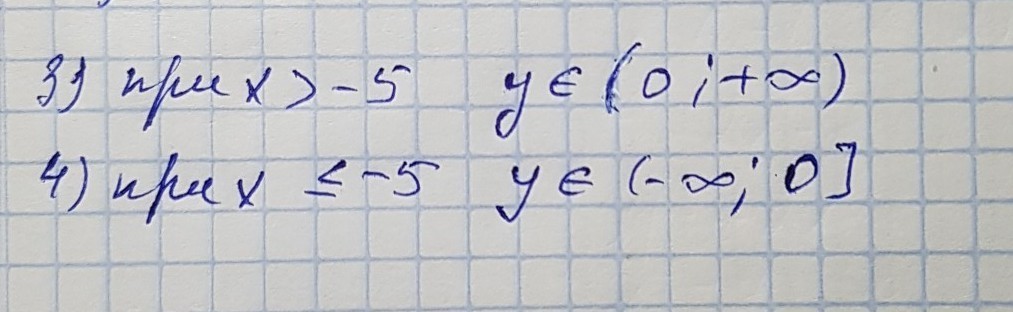 3) при x > -5 y ∈ (0; +∞)
4) при x ≤ -5 y ∈ (-∞; 0]